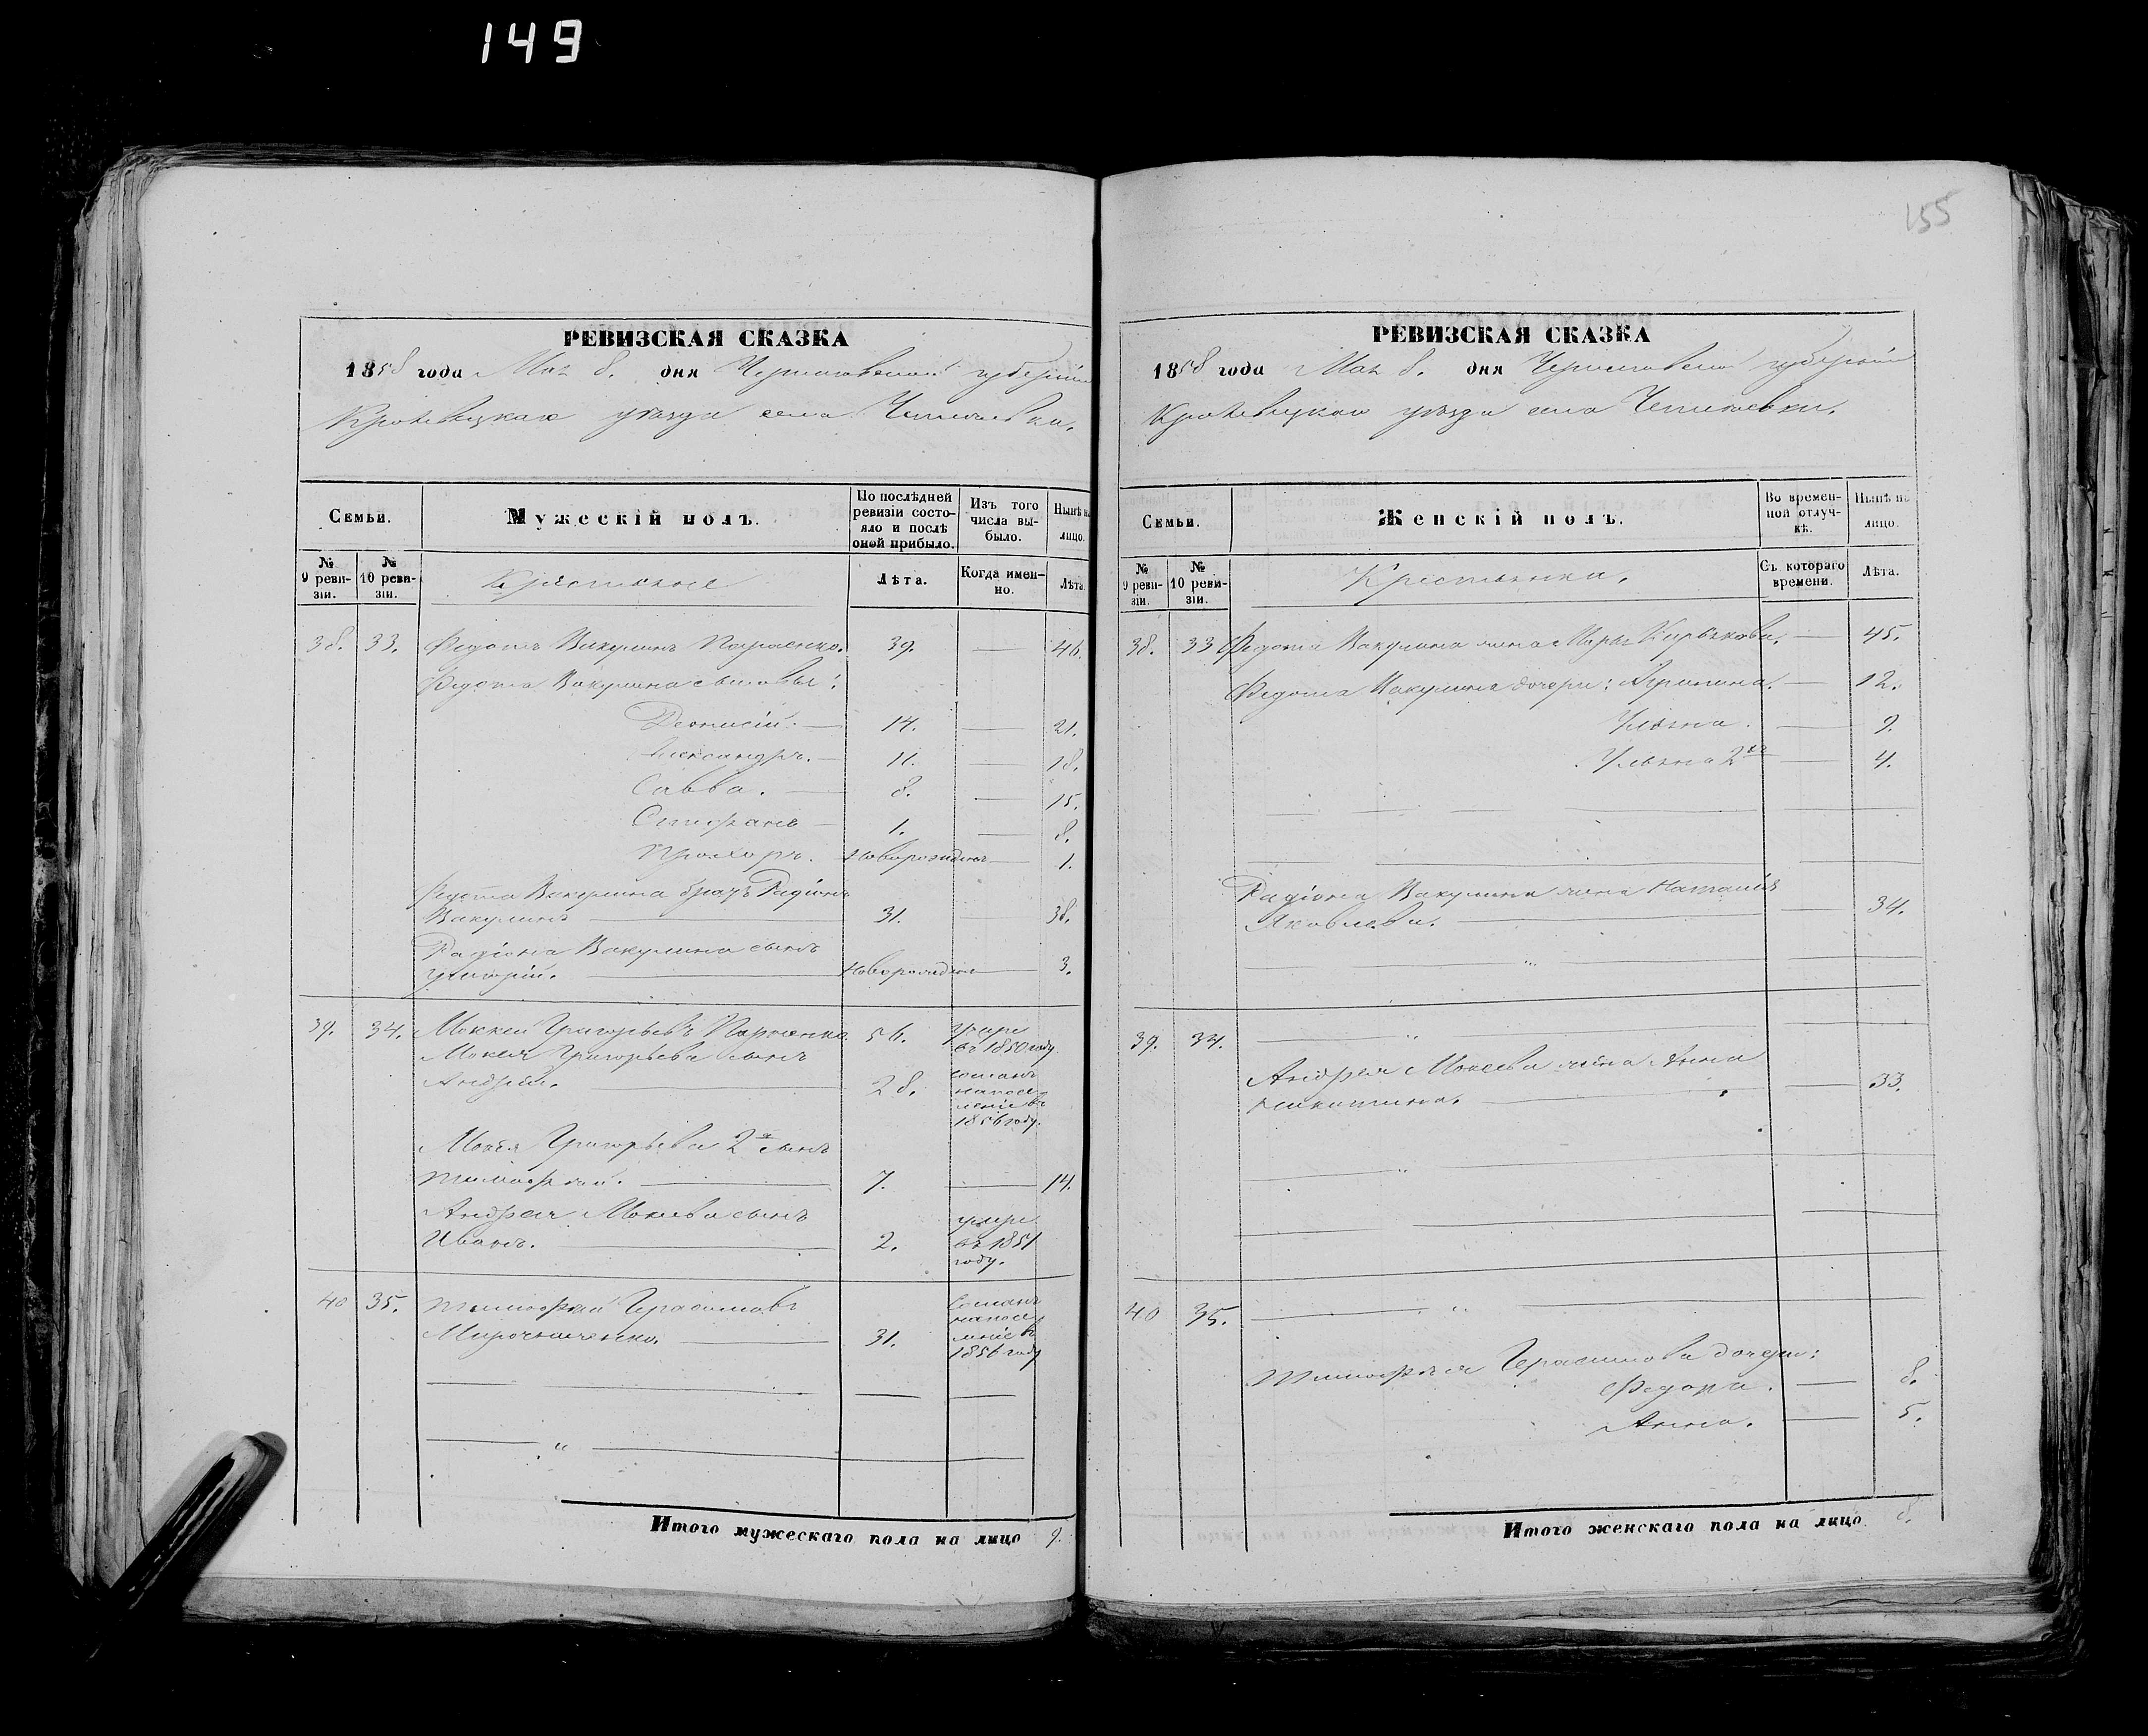 149
155
РЕВИЗСКАЯ СКАЗКА
1858 года Мая 8. дня Черниговской губерніи
Кролевецкаго уѣзда села
Семьи.
Мужескій полъ.
По послѣдней ревизіи состояло и послѣ оной прибыло.
Изъ того числа выбыло.
Нынѣ на лицо.
№ 9 ревизіи.
№ 10 ревизіи.
Крестьяне
Лѣта.
Когда именно.
Лѣта.
38. 33. Федотъ Вакулинъ 39. 46.
Федота Вакулина сыновья:
Деонисій. 14. 21.
Александръ. 11. 18.
Савва. 8. 15.
Стефанъ 1. 8.
Прохоръ. Новорожденъ 1.
Федота Вакулина братъ Радіонъ
Вакулинъ 31. 38.
Радіона Вакулина сынъ
Григорій. Новорожденъ 3.
39. 34. Моккей Григорьевъ 56. умре
въ 1850 году.
Мокея Григорьева сынъ
Андрей. 28. сосланъ
на посе
леніе въ
1856 году.
Мокея Григорьева 2й сынъ
Тимофей. 7. 14.
Андрея Мокеева сынъ
Иванъ. 2. умре
въ 1851
году.
40 35. Тимофей Герасимовъ
Мирошниченко. 31. Сосланъ
на посе
леніе въ
1856 году
Итого мужескаго пола на лицо 9.
РЕВИЗСКАЯ СКАЗКА
1858 года Мая 8. дня Черниговской губерніи
Кролевецкаго уѣзда села
Семьи.
Женскій полъ.
Во временной отлучкѣ.
Нынѣ на лицо.
№ 9 ревизіи.
№ 10 ревизіи.
Крестьянки.
Съ котораго времени.
Лѣта.
38. 33 Федота Вакулина жена 45.
Федота Вакулина дочери: Агрипина. 12.
Ульяна. 9.
Ульяна 2я 4.
Радіона Вакулина жена Наталія
Яковлева. 34.
39. 34.
Андрея Мокеева жена Анна
Никитина. 33.
40 35.
Тимофея Герасимова дочери:
Федора. 8.
Анна. 5.
Итого женскаго пола на лицо 8.